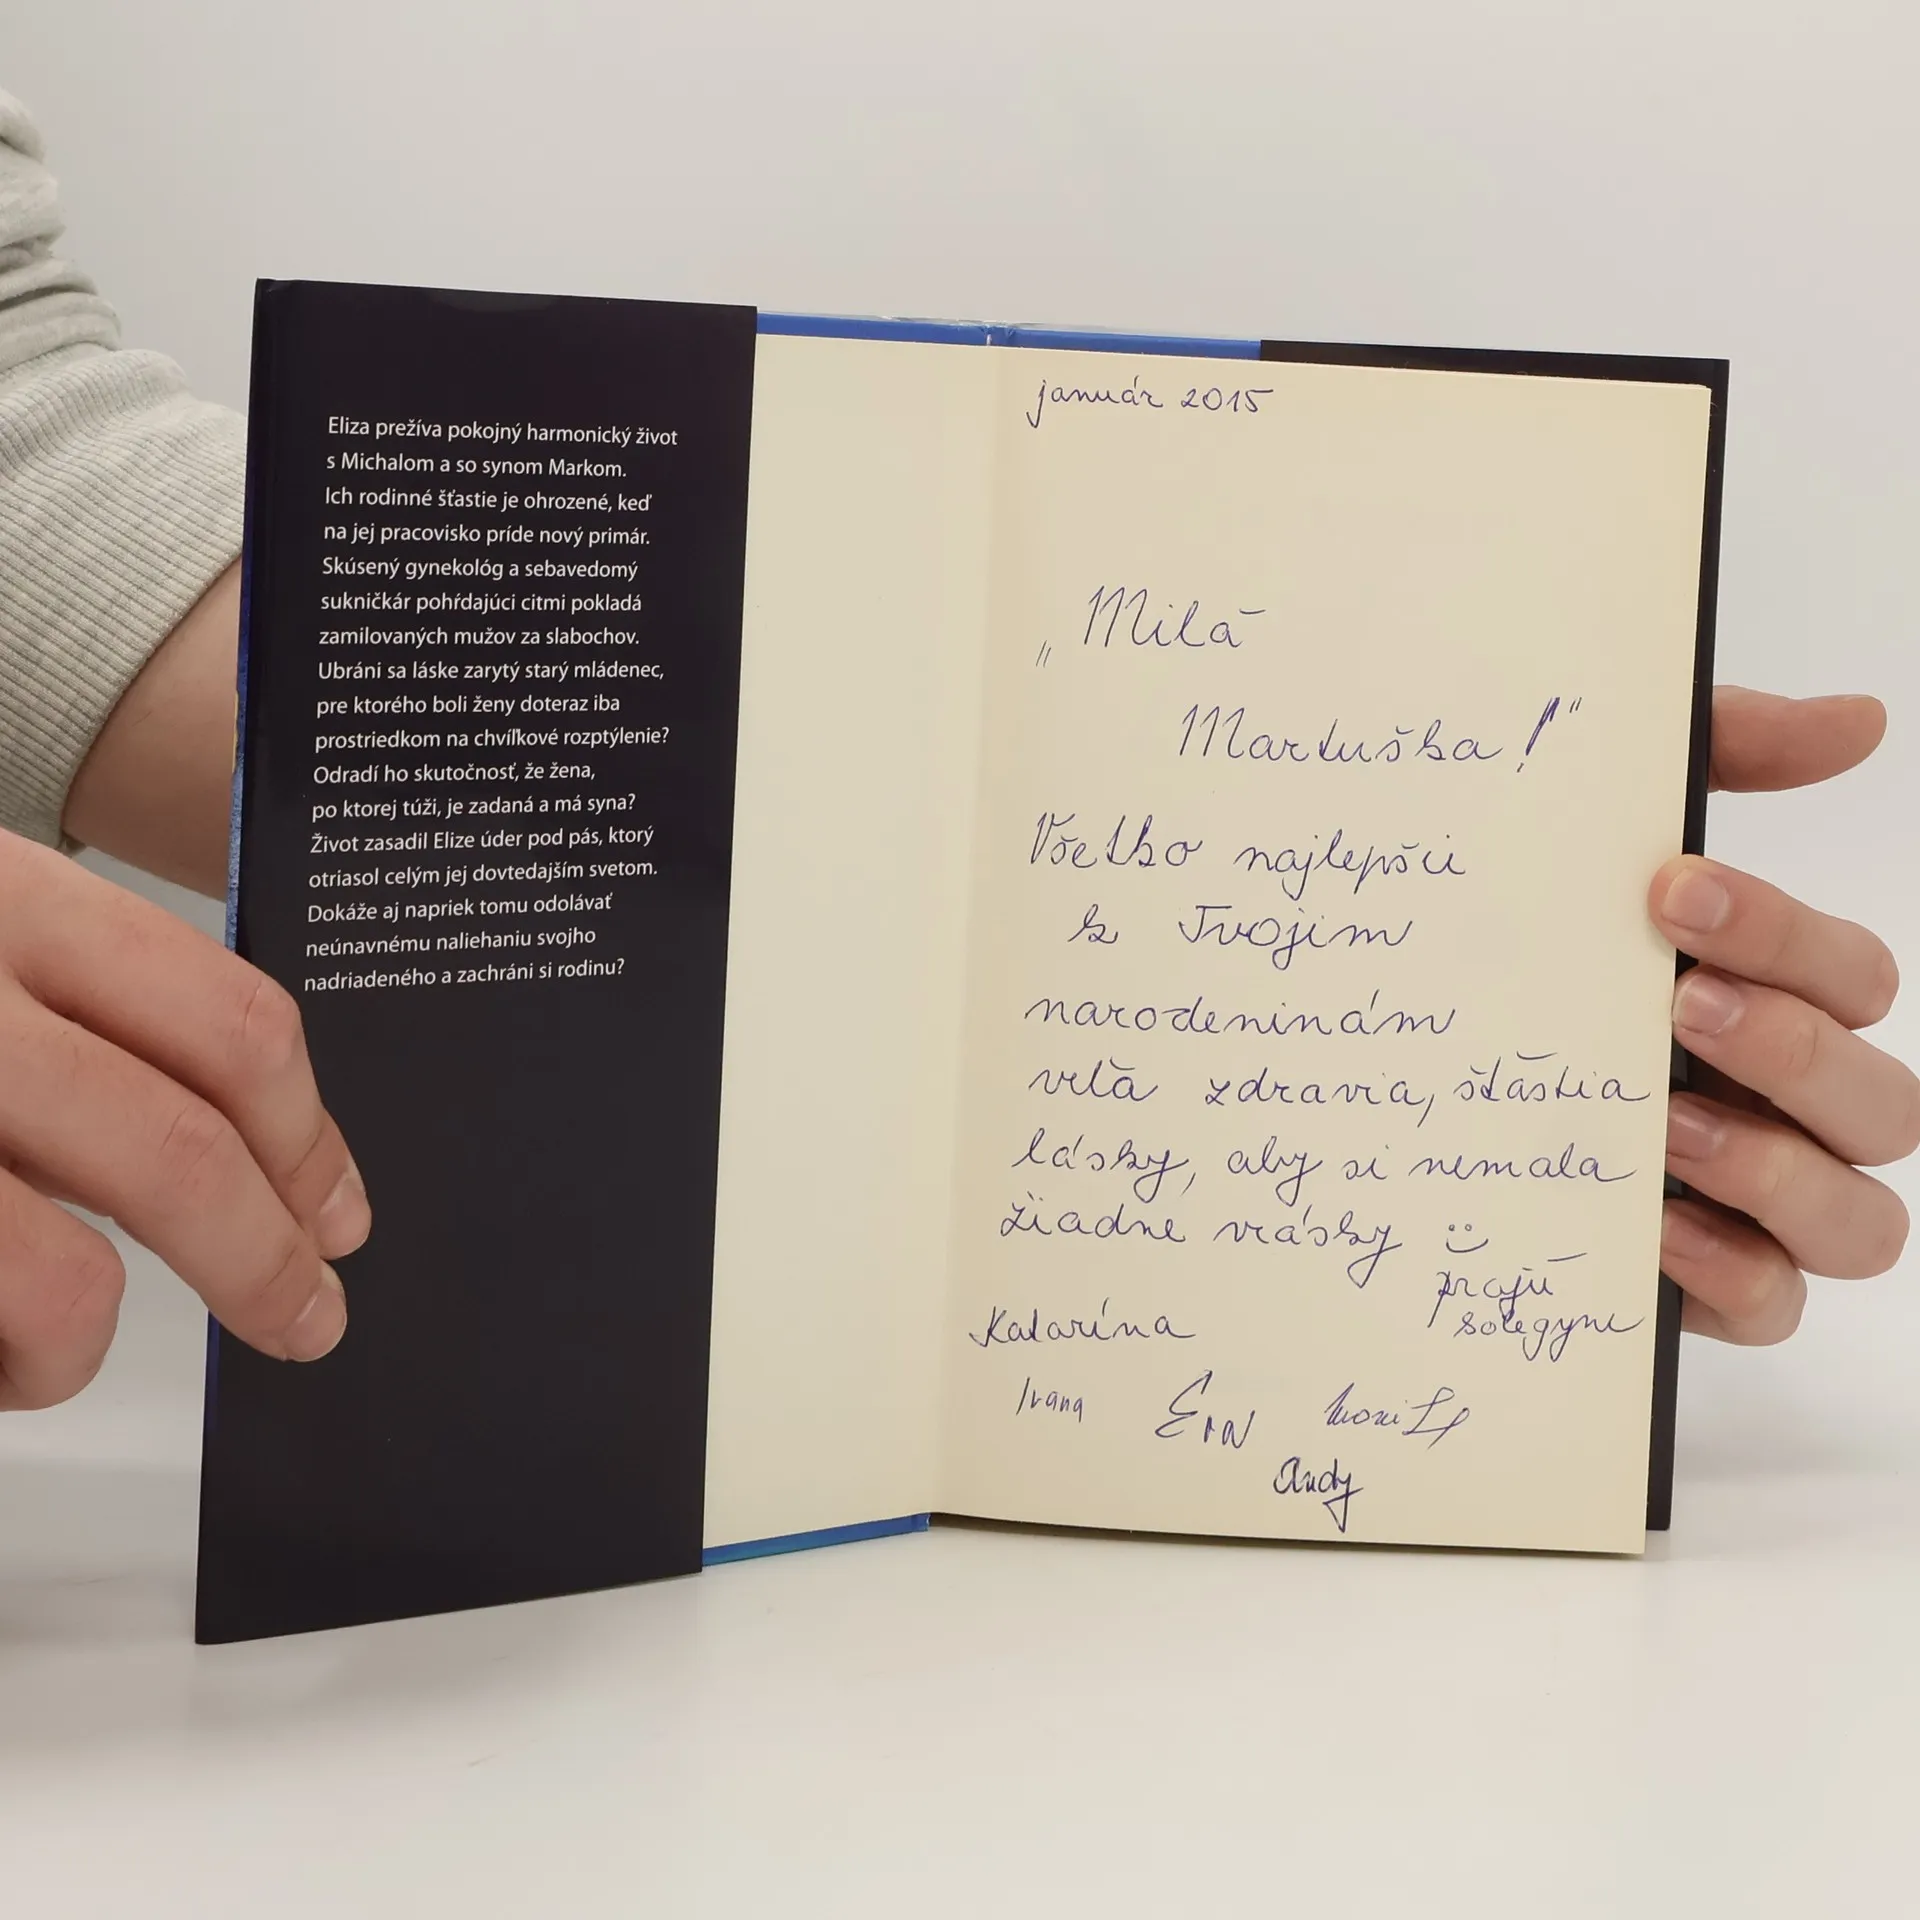 Eliza prežíva pokojný harmonický život
s Michalom a so synom Markom.
Ich rodinné šťastie je ohrozené, keď
na jej pracovisko príde nový primár.
Skúsený gynekológ a sebavedomý
sukničkár pohŕdajúci citmi pokladá
zamilovaných mužov za slabochov.
Ubráni sa láske zarytý starý mládenec,
pre ktorého boli ženy doteraz iba
prostriedkom na chvíľkové rozptýlenie?
Odradí ho skutočnosť, že žena,
po ktorej túži, je zadaná a má syna?
Život zasadil Elize úder pod pás, ktorý
otriasol celým jej dovtedajším svetom.
Dokáže aj napriek tomu odolávať
neúnavnému naliehaniu svojho
nadriadeného a zachráni si rodinu?
január 2015
„Milá
Martuška!"
Všetko najlepšie
k Tvojim
narodeninám
veľa zdravia, šťastia
lásky, aby si nemala
žiadne vrásky
prajú
kolegyne
Katarína
Ivana
Andy